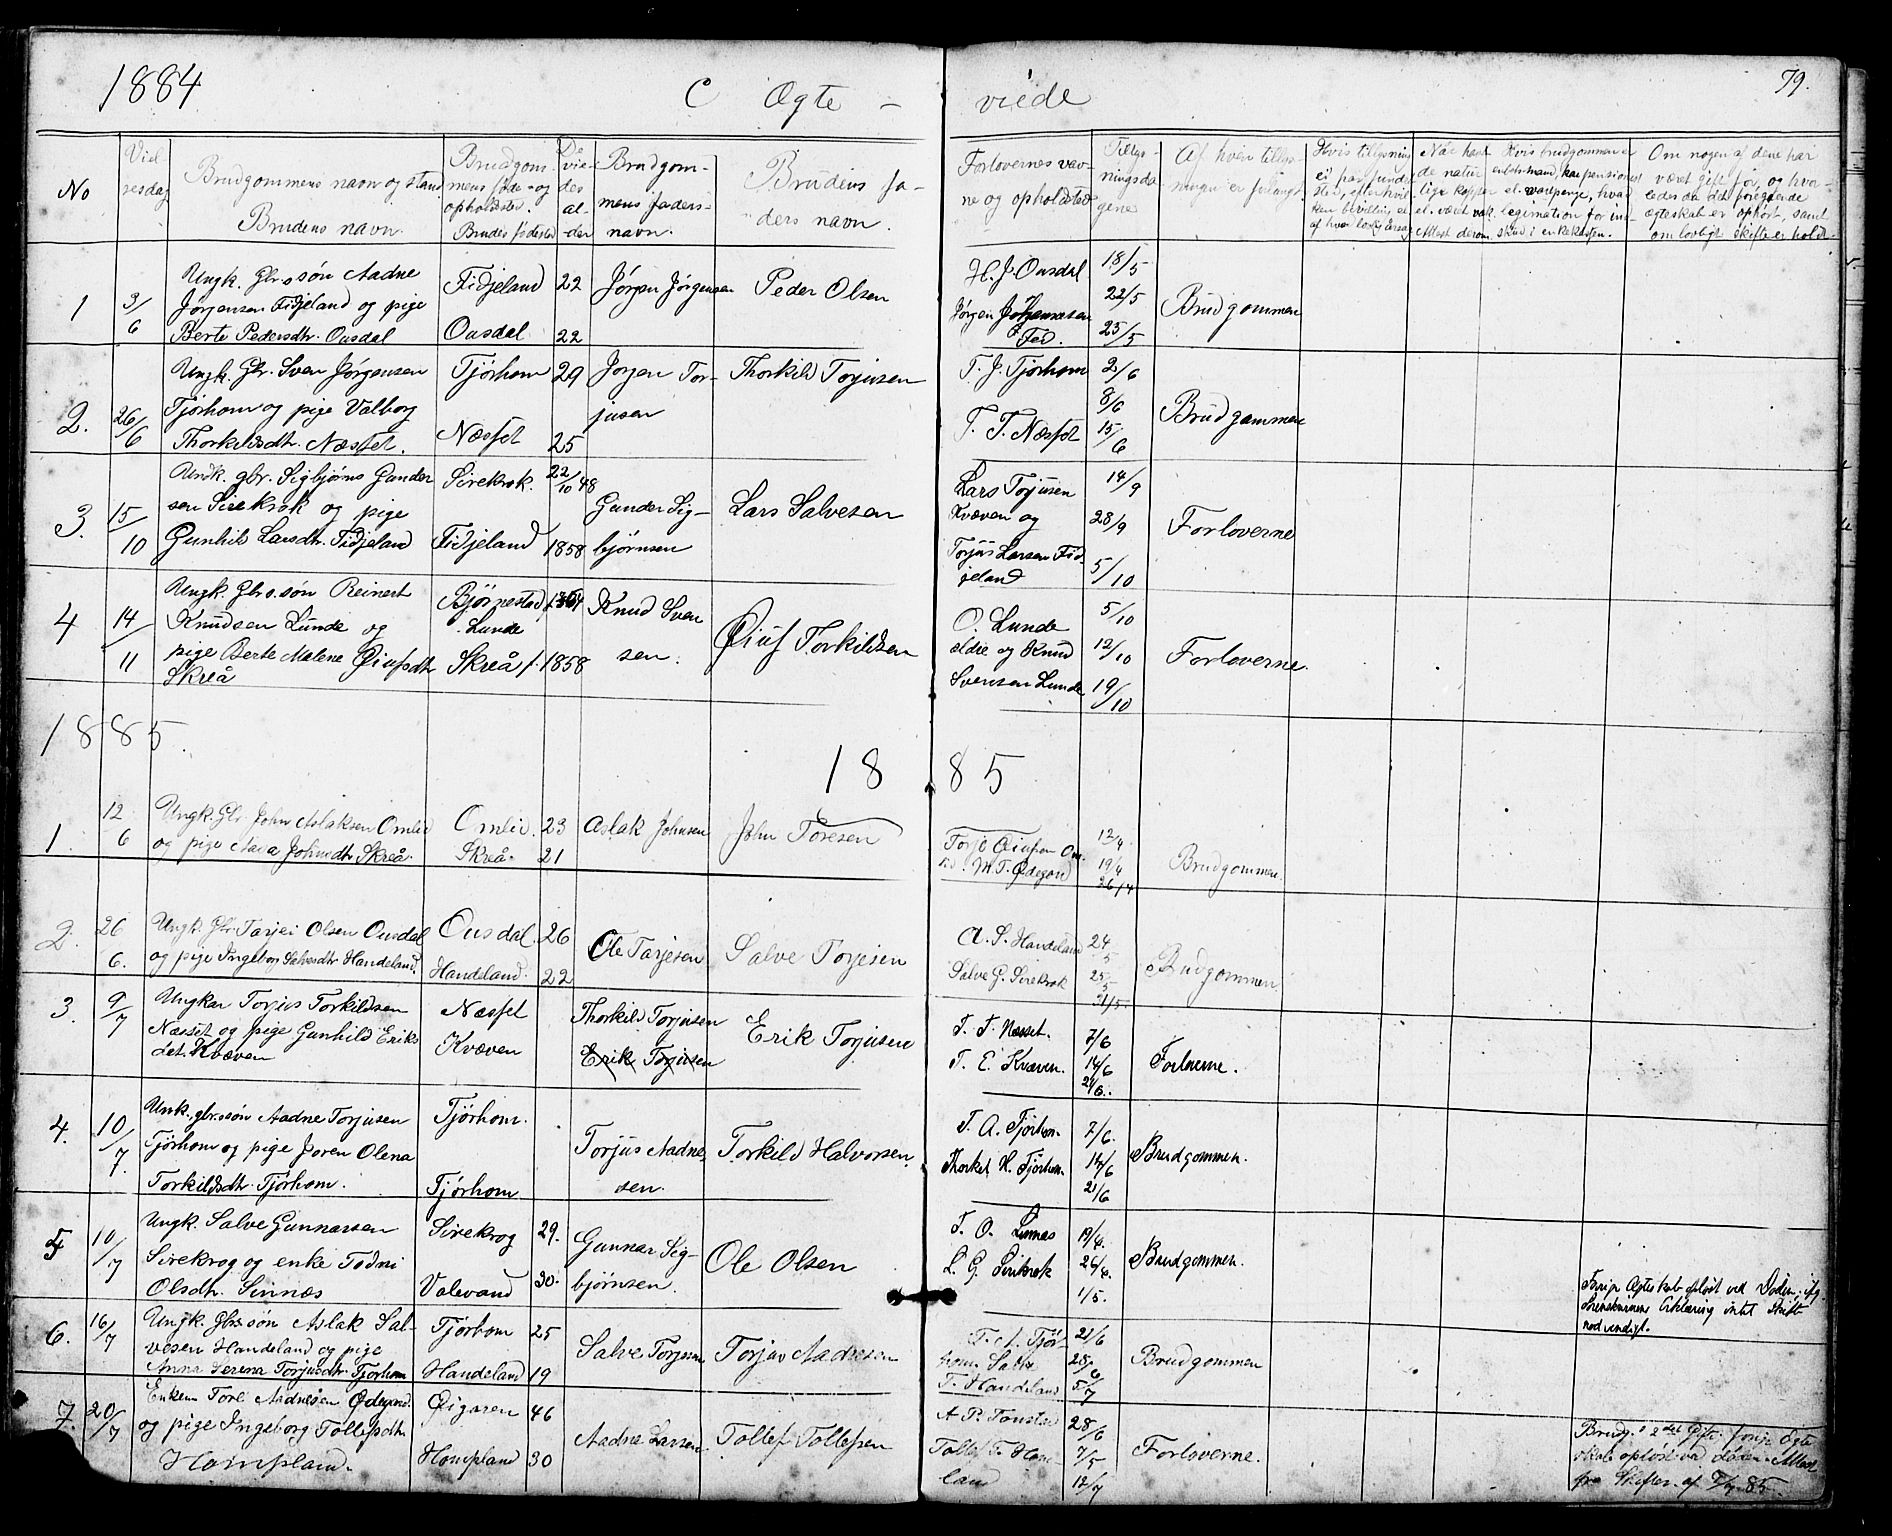 1884
C Ægte - viede
79.
No
Viel-
sesdag
Brudgommens navn og stand
Brudens navn.
Brudgom-
mens føde- og
opholdsted.
Brudes fødested
De
vie-
des
al-
der
Brudgom-
mens faders-
navn.
Brudens fa-
ders navn.
Forlovernes nav-
ne og opholdsted
Tillys-
ningsda
gene
Af hvem tillys-
ningen er forlangt
Hvis tillysning
ei har funder
sted, efter hvil-
ken bevilling el.
Naar havt
de natur
lige kopper
el. været vak.
Attest derom.
Hvis brudgommen er
enkemand, har pensioneret
legimation for ind
skud i enkekassen.
Om nogen af dene har
været gift før, og hvor-
ledes da det foregaaende
ægteskab er ophørt, samt
om lovligt skifte er holdt.
1
3/6
Ungk. Gbr.søn Aadne
Jørgensen Fidjeland og pige
Berte Pedersdtr. Ousdal
Fidjeland
Ousdal
22
22
Jørgen Jørgensen
Peder Olsen
H. J. Ousdal
Jørgen Johannesen
Fed.
18/5
22/5
25/5
Brudgommen
2.
26/6
Ungk. Gbr. Sven Jørgensen
Tjørhom og pige Valborg
Thorkildsdtr. Næsset.
Tjørhom
Næsset
29
25
Jørgen Tor-
jusen
Thorkild Torjusen
T. J. Tjørhom
T. T. Næsset
2/6
8/6
15/6
Brudgommen
3.
15/10
Undk. gbr. Sigbjørns Gunder
sen Sirekrok og pige
Gunhild Larsdtr. Fidjeland
Sirekrok.
Fidjeland
22/10 48
1858
Gunder Sig-
bjørnsen
Lars Salvesen
Lars Torjusen
Kvæven og
Torjus Larsen Fid-
jeland
14/9
28/9
5/10
Forloverne
4
14/11
Ungk. Gbr.søn Reinert
Knudsen Lunde og
pige Berte Malene Øiufsdtr
Skreå
Bjørnestad
Lunde
Skreå
1858
Knud Sven
sen.
Øiuf Torkildsen
O. Lunde
ældre og Knud
Svensen Lunde
5/10
12/10
19/10
Forloverne
1885.
1885
1.
12/6
Ungk. Gbr John Aslaksen Omlid
og pige Aasa Johnsdtr Skreå.
Omlid.
Skreå.
23
21
Aslak Johnsen
John Toresen
Torje Øiufsen Om-
lid. M. T. Ødegård
12/4
19/4
26/4
Brudgommen
2.
26/6.
Ungk. Gbr. Tarjei Olsen Ousdal
og pige Ingeborg Salvesdtr Handeland.
Ousdal.
Handeland.
26
22
Ole Tarjesen
Salve Torjesen
A. S. Handeland
Salve G. Sirekrok
24/5
25/5
31/5.
Brudgommen.
3.
9/7
Ungkar Torjus Torkildsen
Næsset og pige Gunhild Eriks
dtr. Kvæven
Næsset
Kvæven
Thorkild Torjusen
Erik Torjusen
Erik Torjusen
T. T. Næsset.
T. E. Kvæven.
7/6
14/6
21/6.
Forloverne.
4.
10/7.
Unk. gbr.søn Aadne Torjusen
Tjørhom og pige Joren Olena
Torkildsdtr. Tjørhom.
Tjørhom.
Tjørhom
Torjus Aadne-
sen.
Torkild Halvorsen.
T. A. Tjørhom.
Thorkel H. Tjørhom.
7/6.
14/6
21/6
Brudgommen.
5
10/7
Ungk. Salve Gunnarsen
Sirekrog og enke Todni
Olsdtr. Sinnæs
Sirekrog
Valevand
29.
30.
Gunnar Sig-
bjørnsen.
Ole Olsen
T. O. Sinnæs
L. G. Sirekrok
19/4.
26/4.
1/5.
Brudgommen.
Forrige Ægteskab opløst ved Døden; ifg.
Lensmannens Erklæring intet Skifte
nødvendigt.
6.
16/7
Ungk. Gbr.søn Aslak Sal-
vesen Handeland og pige
Anna Serena Torjusdtr. Tjørhom
Tjørhom
Handeland
25
19
Salve Torjesen
Torjus Aadnesen
T. A. Tjør-
hom Salve
T. Handeland
21/6
28/6
5/7
Brudgommen
7.
20/7
Enkem Tore Aadnesen Ødegaard.
og pige Ingeborg Tollefsdtr.
Hompland.
Øigaren
Hompland
46
30
Aadne Larsen.
Tollef Tollefsen
A P. Tonstad
Tollef T. Hom
land
28/6
7/5
12/7
Forloverne.
Brudg. i 2det Gifte. forrige Ægte
skab opløst ved Døden. Attest
fra Skifter. af 7/7 85.